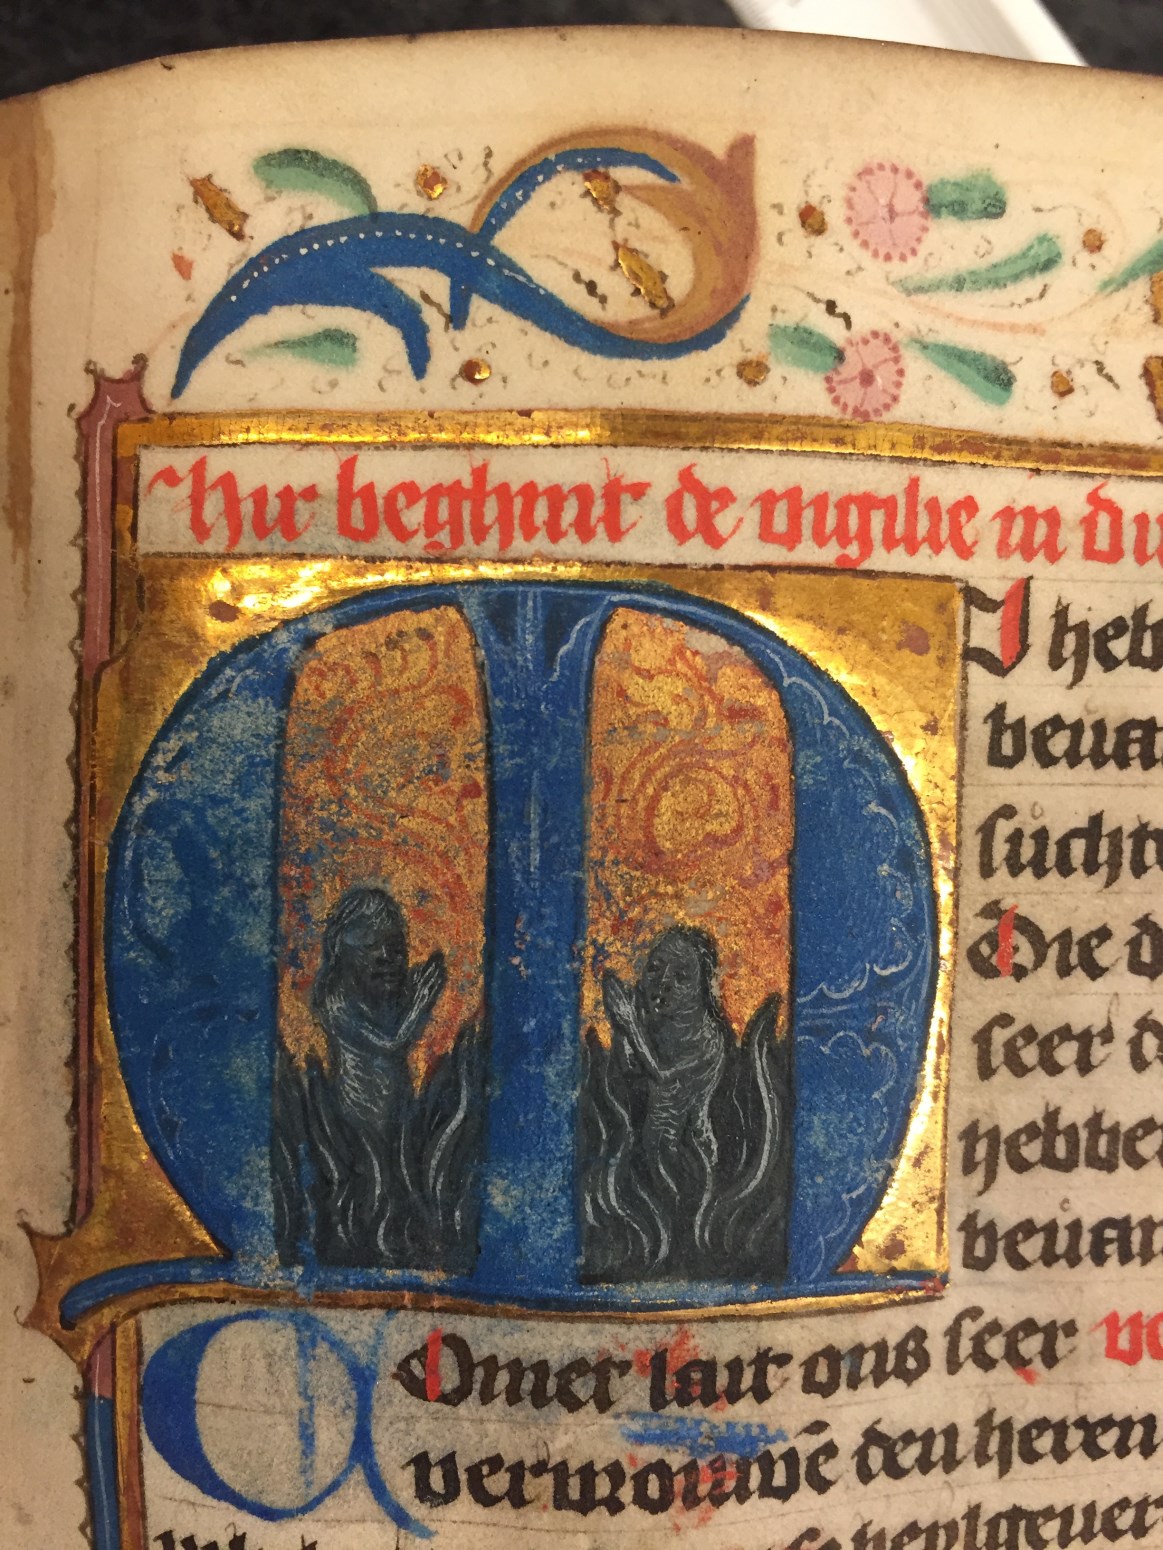 Hir beghint de vigilie in du
M
I heb
bevan
suchte
Die d
seer d
hebbe
bevan
COmet lait ons seer
verwrouwē den heren